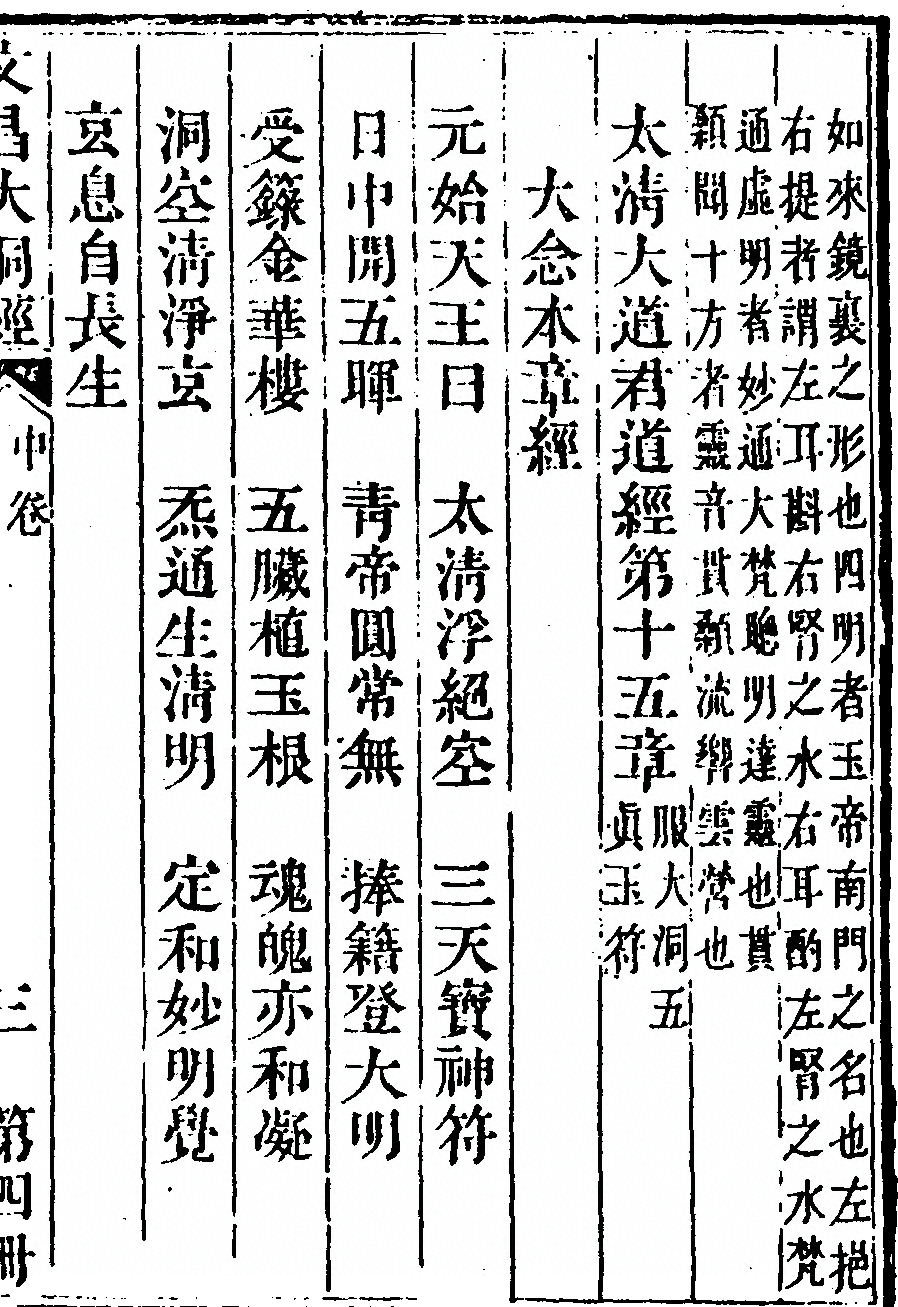 如來鏡裏之形也四明者玉帝南門之名也左挹
右提者謂左耳斟右腎之水右耳酌左腎之水梵
通虛明者妙通大梵聰明達靈也貫
穎聞十方者靈音貫穎流響雲營也
太淸大道君道經第十五章服大洞五眞玉符
大念本章經
元始天王曰　太淸浮絕空　三天寶神符
日中開五暉　靑帝圓常無　捧籍登大明
受籙金華樓　五臟植玉根　魂魄亦和凝
洞空淸淨玄　炁通生淸明　定和妙明覺
玄息自長生
文昌大洞經　中卷　三　第四冊